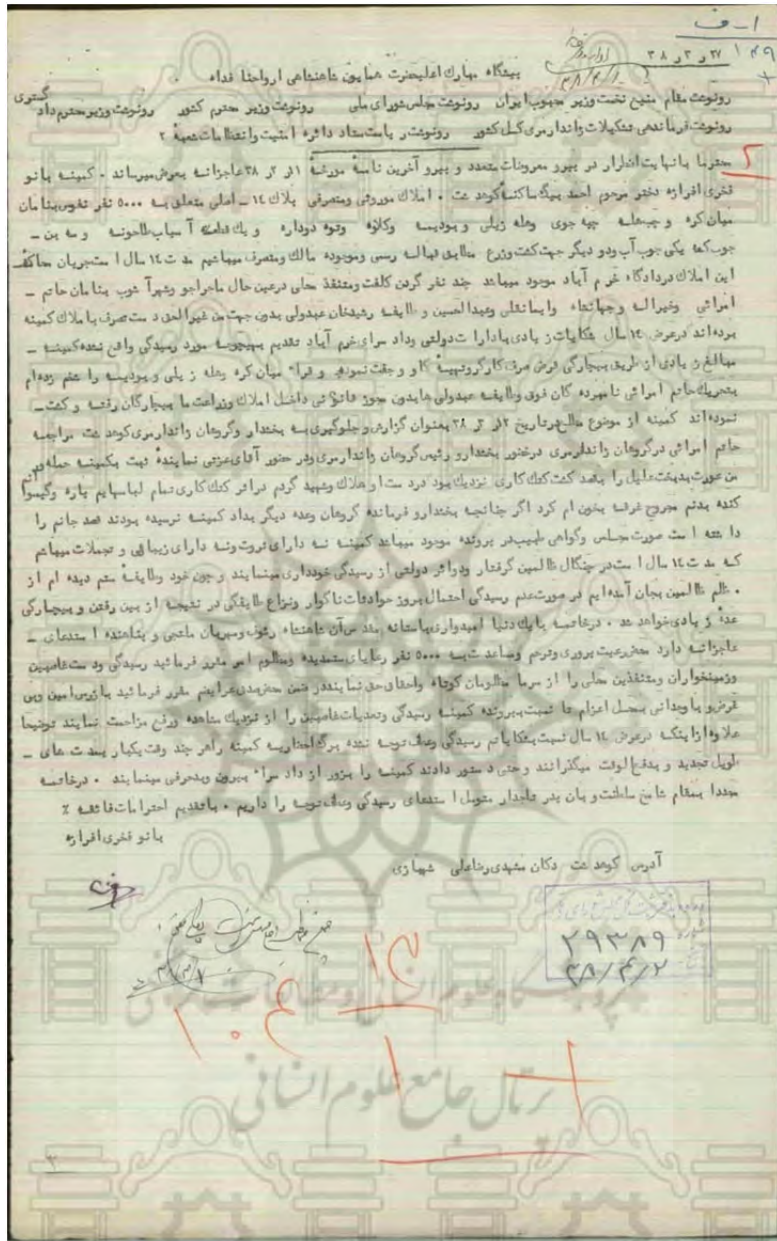 ۱ـ ف
۱۴۹
۲۷ ر ۳ ر ۳۸
پیشگاه مبارک اعلیحضرت همایون شاهنشاهی ارواحنا فداه
رونوشت مقام منیع نخست وزیر محبوب ایران رونوشت مجلس شورای ملی رونوشت وزیر محترم کشور رونوشت وزیر محترم دادگستری
رونوشت فرماندهی تشکیلات ژاندارمری کل کشور رونوشت ریاست ستاد دائره امنیت و انتظامات شعبه ۲
۲
محترما با نهایت اضطرار در پیرو معروضات متعدد و پیرو آخرین نامه مورخه ۳۸ عاجزانه بعرض میرساند . کمینه بانو
فخری افرازه دختر مرحوم احمد بیگ ساکنه کوهدشت . املاک موروثی و متصرفی پلاک ۱۴ ـ اصلی متعلق به ۵۰۰۰ نفر نفوس بنامان
میان کره و چیه جوی وهله زیلی و بودیسه وکلاوه وتوه دوداره و یک قطعه آسیاب طاحونه و سه بن ـ
جوب که یکی جوب آب ودو دیگر جهت کشت وزرع مطابق قباله رسمی وموجوده مالک ومتصرف میباشیم مدت ۱۴ سال است جریان
این املاک در دادگاه خرم آباد موجود میباشد چند نفر گردن کلفت ومتنفذ محلی درعین حال ماجراجو وشرآشوب بنامان حاتم ـ
امرائی وخیراله وجهانشاه وایمانقلی وعبدالحسین و طایفه رشیدخان عبدولی بدون جهت من غیرالحق دست تصرف باملاک کمینه
برده اند درعرض ۱۴ سال شکایات زیادی بادارات دولتی وداد سرای خرم آباد تقدیم بهیچوجه مورد رسیدگی واقع نشده کمینه ـ
مبالغ زیادی از طریق بیچارگی قرض صرف کارکرد وتهیه گاو وجفت نموده و قراء میان کره وهله زیلی و بودیسه را شخم زده ام
بتحریک حاتم امرائی نامبرده گان فوق وطایفه عبدولی ها بدون مجوز قانونی داخل املاک وزراعت ما بیچارگان رفته و کشت ـ
نموده اند کمینه از موضوع مطلع بتاریخ ۳۸ بعنوان گزارش وجلوگیری به بخشدار وگروهان ژاندارمری کوهدشت مراجعه
حاتم امرائی درگروهان ژاندارمری درحضور بخشدار و رئیس گروهان ژاندارمری ودر حضور آقای عزتی نماینده ثبت بکمینه حمله ور
من عورت بدبخت علیل را بقصد کشت کتک کاری نزدیک بود در دست او هلاک وشهید گردم دراثر کتک کاری تمام لباسهایم پاره وگیسوانم
کنده بدنم مجروح غرقه بخون ام کرد اگر چنانچه بخشدار و فرمانده گروهان وعده دیگر بداد کمینه نرسیده بودند قصد جانم را
داشته است صورت مجلس وگواهی طبیب در پرونده موجود میباشد کمینه نه دارای ثروت ونه دارای زیبائی و تجملات میباشم
که مدت ۱۴ سال است در چنگال ظالمین گرفتار ودوائر دولتی از رسیدگی خودداری مینمایند و چون خود وطایفه ستم دیده ام از
ظلم ظالمین بجان آمده ایم در صورت عدم رسیدگی احتمال بروز حوادثات ناگوار ونزاع طایفگی در نتیجه از بین رفتن و بیچارگی
عده زیادی خواهد شد . درخاتمه بایک دنیا امیدواری بآستانه مقدس آن شاهنشاه رئوف ومهربان ملتجی و پناهنده استدعای ـ
عاجزانه دارد محض رعیت پروری وترحم ومساعدت به ۵۰۰۰ نفر رعایای ستمدیده ومظلوم امر مقرر فرمائید رسیدگی ودست غاصبین
وزمینخواران ومتنفذین محلی را از سر ما مظلومان کوتاه واحقاق حق نمایند در ضمن مقرر فرمائید بازرس امین وبی
غرض و باوجدانی بمحل اعزام تا نسبت بپرونده کمینه رسیدگی وتعدیات غاصبین را از نزدیک مشاهده ورفع مزاحمت نمایند توضیحا
علاوه ازاینکه درعرض ۱۴ سال نسبت بشکایاتم رسیدگی وعطف توجه نشده برگ احضاریه کمینه راهر چند وقت یکبار بمدت های ـ
طویل تجدید و بدفع الوقت میگذرانند و حتی دستور دادند کمینه را بزور از داد سرا بیرون وبدحرفی مینمایند . درخاتمه
مجددا بمقام شامخ سلطنت و بان پدر تاجدار متوسل استدعای رسیدگی وعطف توجه را داریم . باتقدیم احترامات فائقه ٪
بانو فخری افرازه
آدرس کوهدشت دکان مشهدی رضاعلی شهبازی
۲۹۳۸۹
۳۸/۴/۲
پژوهشگاه علوم انسانی و مطالعات فرهنگی
پرتال جامع علوم انسانی
۳